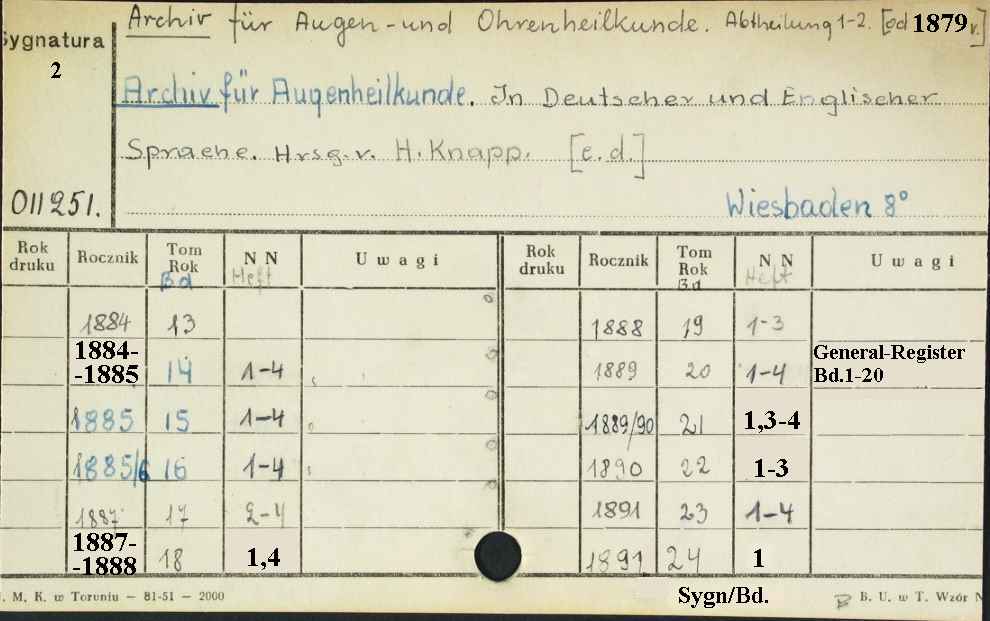 Archiv für Augen-und Ohrenheilkunde. Abtheilung 1-2. [od 1879 r.]
Sygnatura
2
Archiv für Augenheilkunde. In Deutscher und Englischer
Sprache. Hrsg. v. H. Knapp. [e.d.]
011251.
Wiesbaden 8°
Rok druku Rocznik Tom Rok Bd NN Heft Uwagi Rok druku Rocznik Tom Rok Bd NN Heft Uwagi
1884 13 1888 19 1-3
1884-
-1885 14 1-4 1889 20 1-4 General-Register
Bd.1-20
1885 15 1-4 1889/90 21 1,3-4
1885/6 16 1-4 1890 22 1-3
1887 17 2-4 1891 23 1-4
1887-
-1888 18 1,4 1891 24 1
M. K. w Toruniu — 81-51 — 2000
Sygn/Bd.
B. U. w T. Wzór N